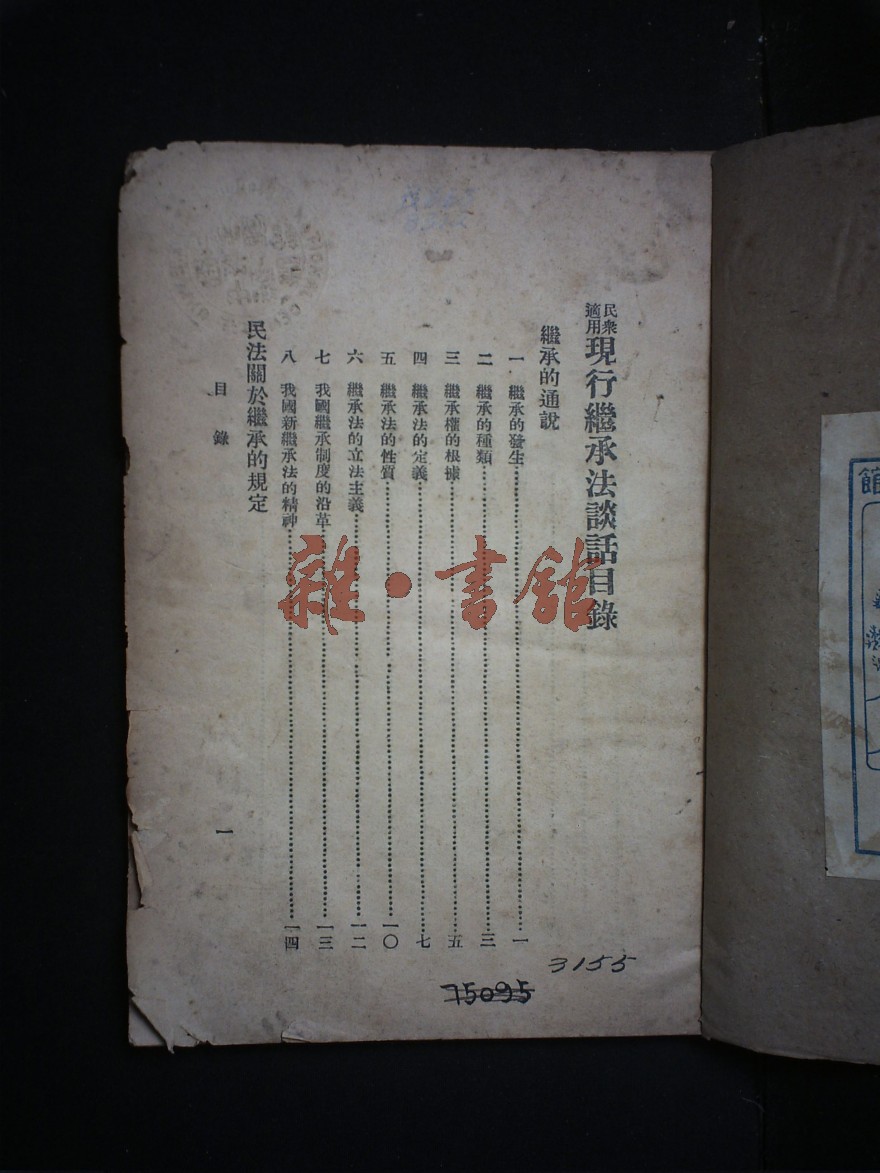 民衆適用現行繼承法談話目錄
繼承的通說
一 繼承的發生……一
二 繼承的種類……三
三 繼承權的根據……五
四 繼承法的定義……七
五 繼承法的性質……一〇
六 繼承法的立法主義……一二
七 我國繼承制度的沿革……一三
八 我國新繼承法的精神……一四
民法關於繼承的規定
目錄
一
3155
75095
雜·書館
館